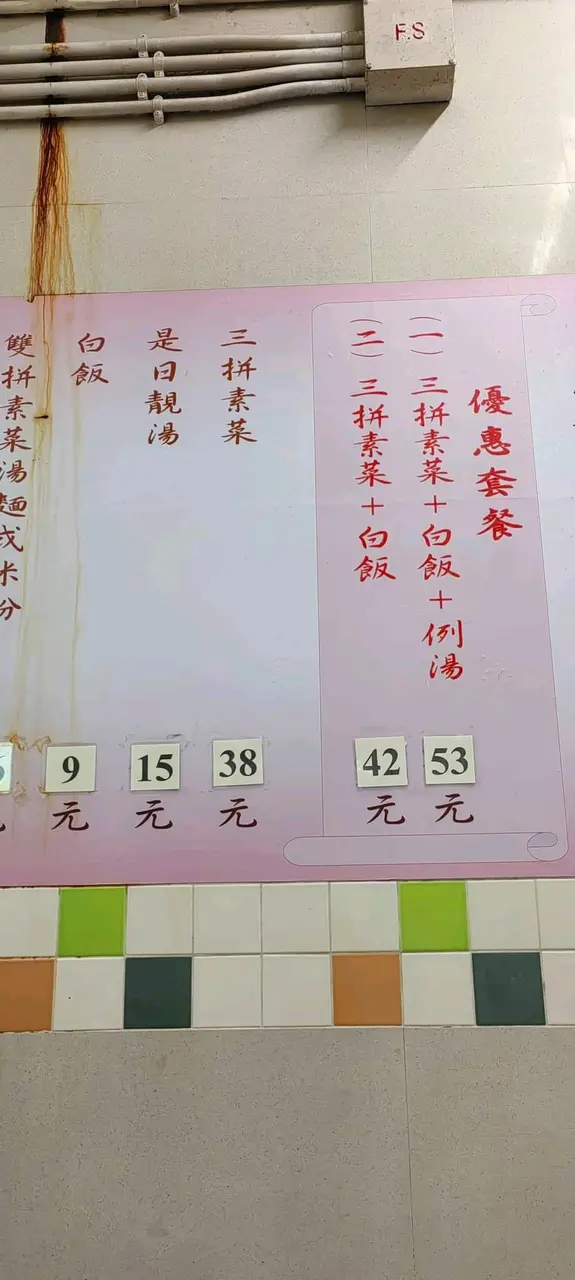 F.S
優惠套餐
(一) 三拼素菜+白飯+例湯
53
元
(二) 三拼素菜+白飯
42
元
三拼素菜
38
元
是日靚湯
15
元
白飯
9
元
雙拼素菜湯麵或米分
元